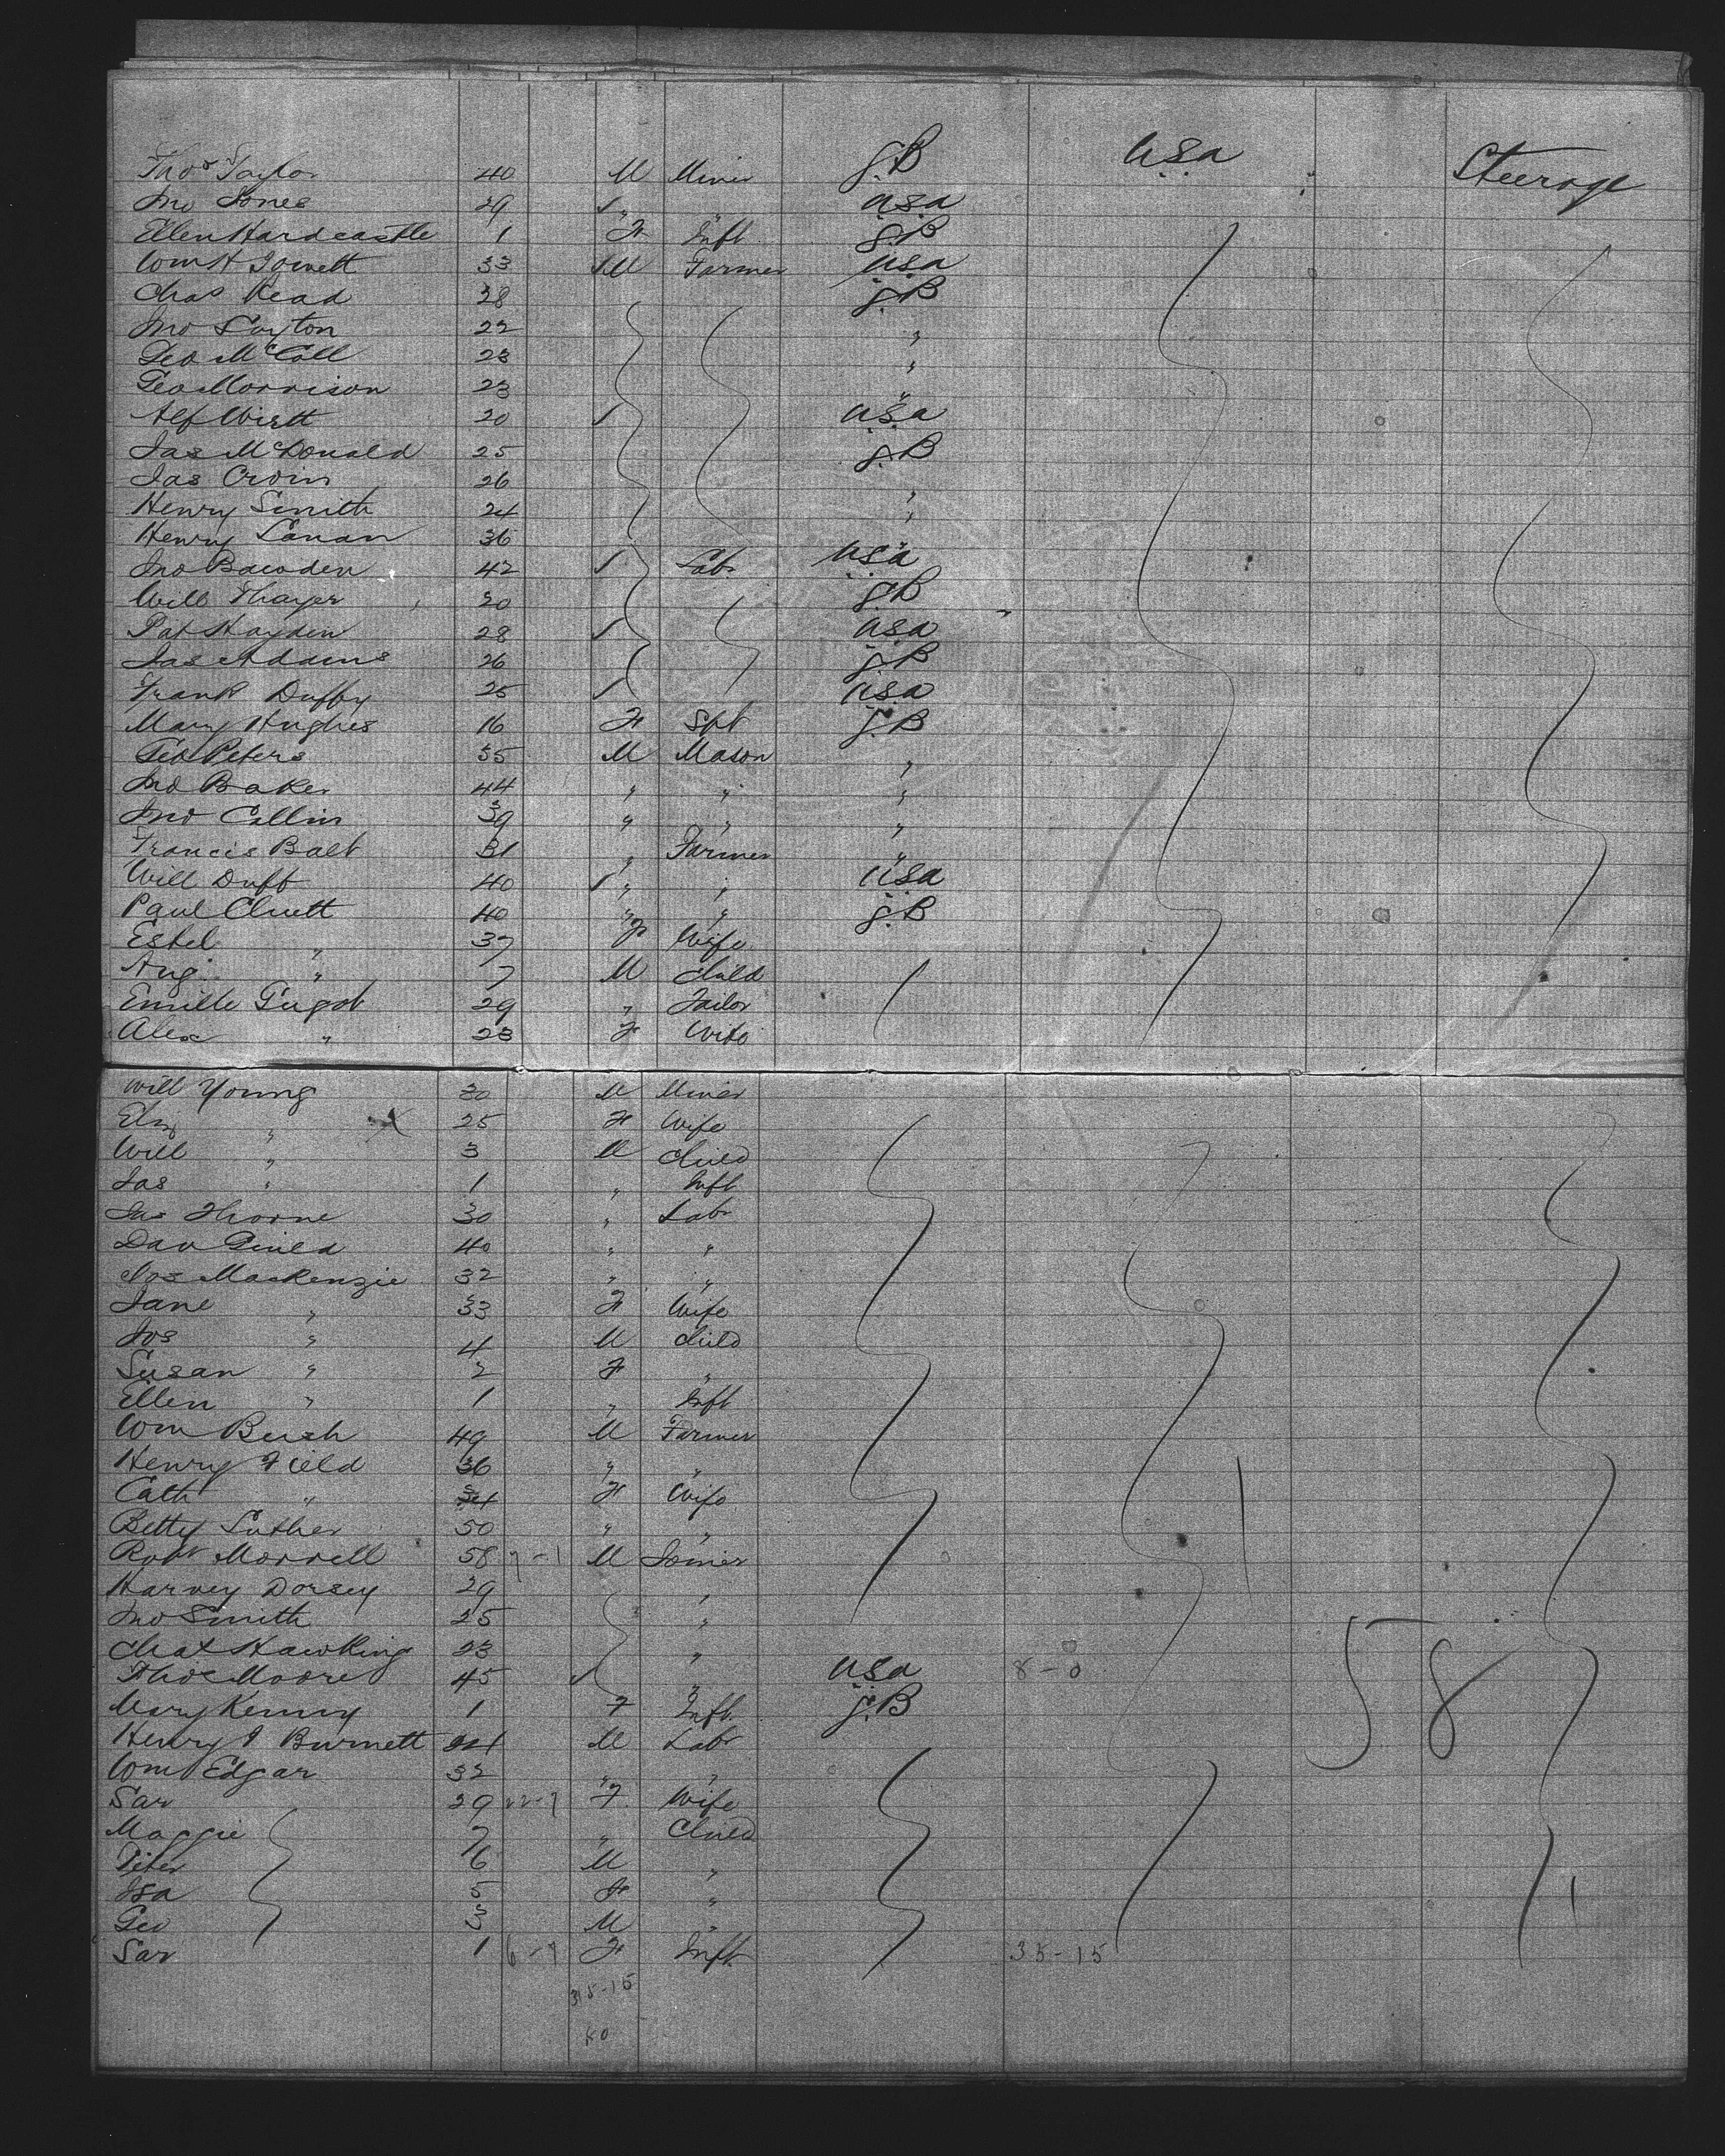 Thos Taylor 40 M Miner G.B U.S.a Steerage
Jno Jones 29 ✓ " " U.S.a
Ellen Hardcastle 1 F Inft G.B
Wm H 33 ✓ M Farmer U.S.a
Chas Read 28 G.B
Jno Layton 22 "
Geo McCall 23 "
Geo Morrison 23 "
Alf 20 ✓ U.S.a
Jas McDonald 25 G.B
Jas 26 "
Henry Smith 24 "
Henry Lanan 36 "
Jno Bawden 42 ✓ Labr U.S.a
Will Thayer 20 G.B
Pat Hayden 28 ✓ U.S.a
Jas Adams 26 G.B
Frank Duffy 25 ✓ U.S.a
Mary Hughes 16 F Spt G.B
Geo Peters 35 M Mason "
Jno Baker 44 " " "
Jno Collin 39 " " "
Francis Balt 31 " Farmer "
Will Duff 40 ✓ " " U.S.a
Paul Cluett 40 " " G.B
Estel " 37 F Wife
Aug " 7 M Child
Emille Gugot 29 " Tailor
Alex " 23 F Wife
Will Young 30 M Miner
Eliz " X 25 F Wife
Will " 3 M Child
Jas " 1 " Inft
Jas Thorne 30 " Labr
Dav 40 " "
Jos Mackenzie 32 " "
Jane " 33 F Wife
Jos " 4 M Child
Susan " 2 F "
Ellen " 1 " Inft
Wm Bush 49 M Farmer
Henry Field 36 " "
Cath " 34 F Wife
Betty Luther 50 " "
Robt Morrell 58 7-1 M Joiner
Harvey Dorsey 29 "
Jno Smith 25 "
Chas Hawking 23 "
Thos Moore 45 ✓ " U.S.a 8-0 58
Mary Kenny 1 F Inft G.B
Henry J Burnett 24 M Labr
Wm Edgar 32 " "
Sar 29 22-7 F Wife
Maggie 7 " Child
Peter 6 M "
Isa 5 F "
Geo 3 M "
Sar 1 6-7 F Inft 35-15
35-15